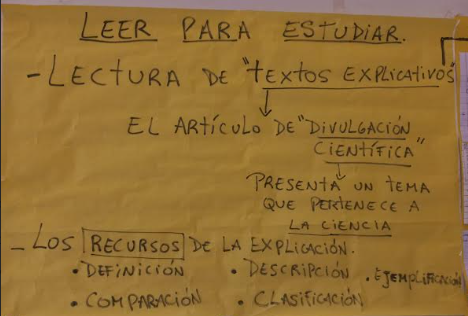 LEER PARA ESTUDIAR.
- LECTURA DE "TEXTOS EXPLICATIVOS"
EL ARTÍCULO DE "DIVULGACIÓN
CIENTÍFICA"
PRESENTA UN TEMA
QUE PERTENECE A
LA CIENCIA
- LOS RECURSOS DE LA EXPLICACIÓN.
• DEFINICIÓN • DESCRIPCIÓN • EJEMPLIFICACIÓN
• COMPARACIÓN • CLASIFICACIÓN